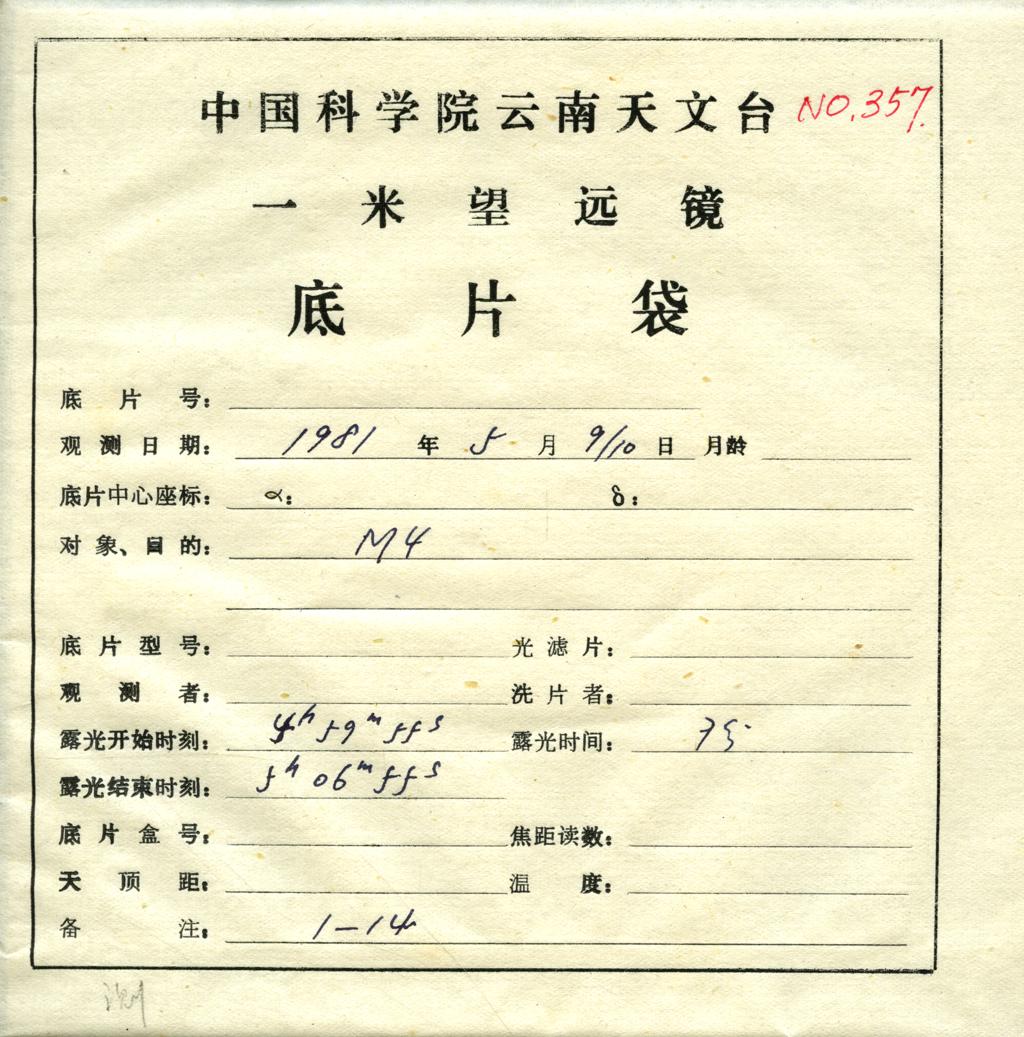 中国科学院云南天文台 NO.357.
一米望远镜
底片袋
底片号：
观测日期： 1981 年 5 月 9/10 日 月龄
底片中心座标： α： δ：
对象、目的： M4
底片型号： 光滤片：
观测者： 洗片者：
露光开始时刻： 4h 59m 55s 露光时间： 7分
露光结束时刻： 5h 06m 55s
底片盒号： 焦距读数：
天顶距： 温度：
备注： 1—14